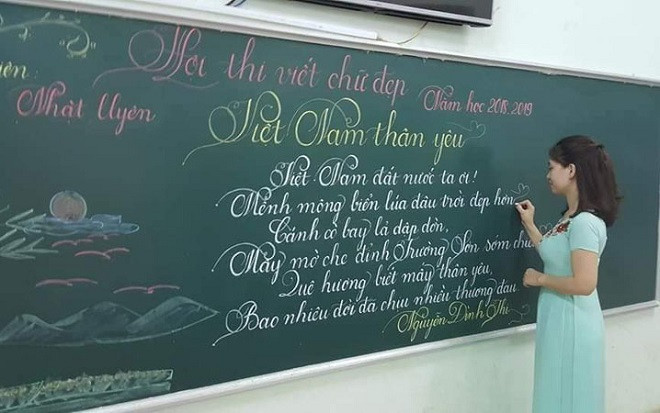 Hội thi viết chữ đẹp
Năm học 2018-2019
Nhật Uyên
Việt Nam thân yêu
Việt Nam đất nước ta ơi!
Mênh mông biển lúa đâu trời đẹp hơn
Cánh cò bay lả dập dờn,
Mây mờ che đỉnh Trường Sơn sớm chiều
Quê hương biết mấy thân yêu,
Bao nhiêu đời đã chịu nhiều thương đau
Nguyễn Đình Thi